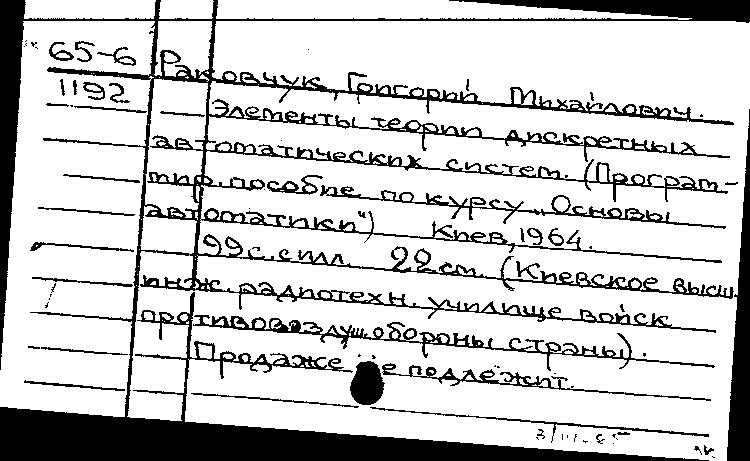 65-6 Раковчук, Григорий Михайлович.
1192 Элементы теории дискретных
автоматических систем. (Програм-
мир. пособие по курсу „Основы
автоматики") Киев, 1964.
99 с. с илл. 22 см. (Киевское высш.
инж. радиотехн. училище войск
противовоздуш. обороны страны).
Продаже не подлежит.
3/III-65